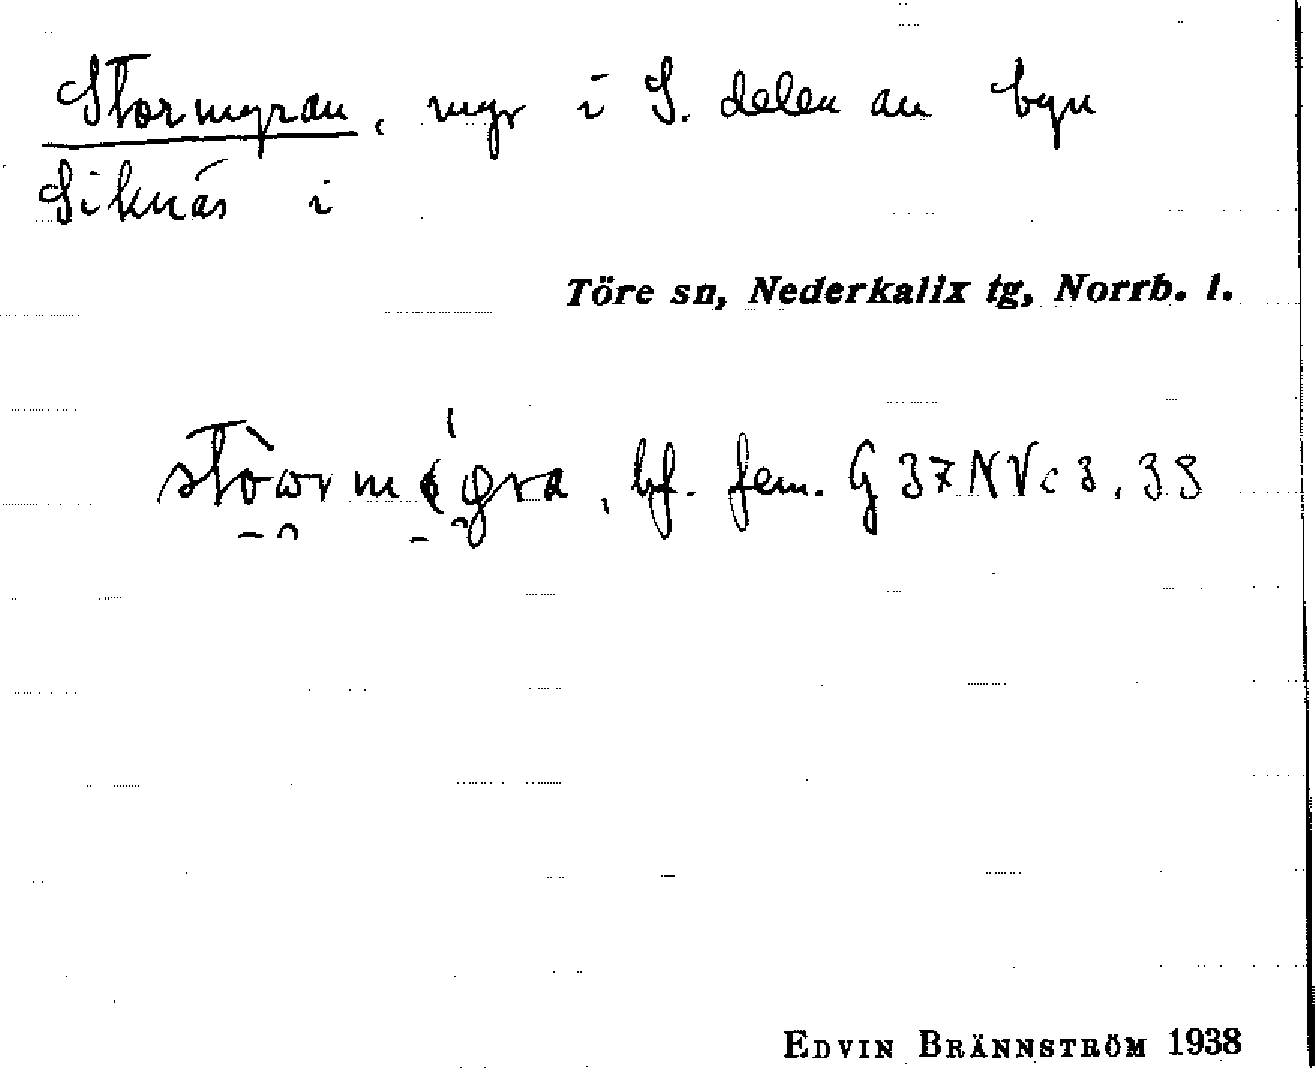 Stormyran, myr i S. delen av byn
Siknäs i
Töre sn, Nederkalix tg, Norrb. l.
bf. fem. G 37 N V c 3. 38
EDVIN BRÄNNSTRÖM 1938